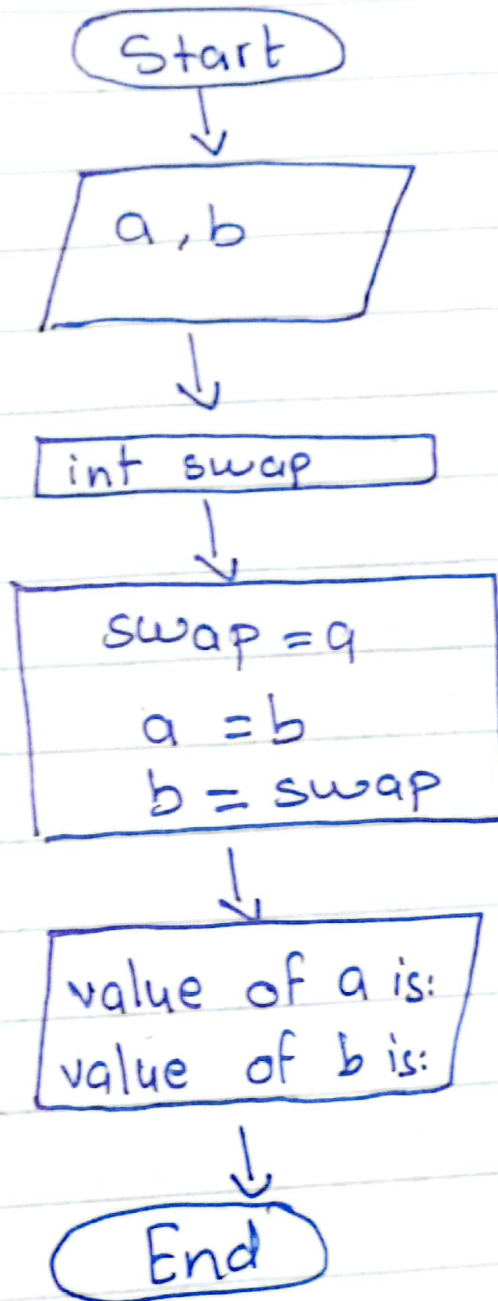 Start
a, b
int swap
swap = a
a = b
b = swap
value of a is:
value of b is:
End